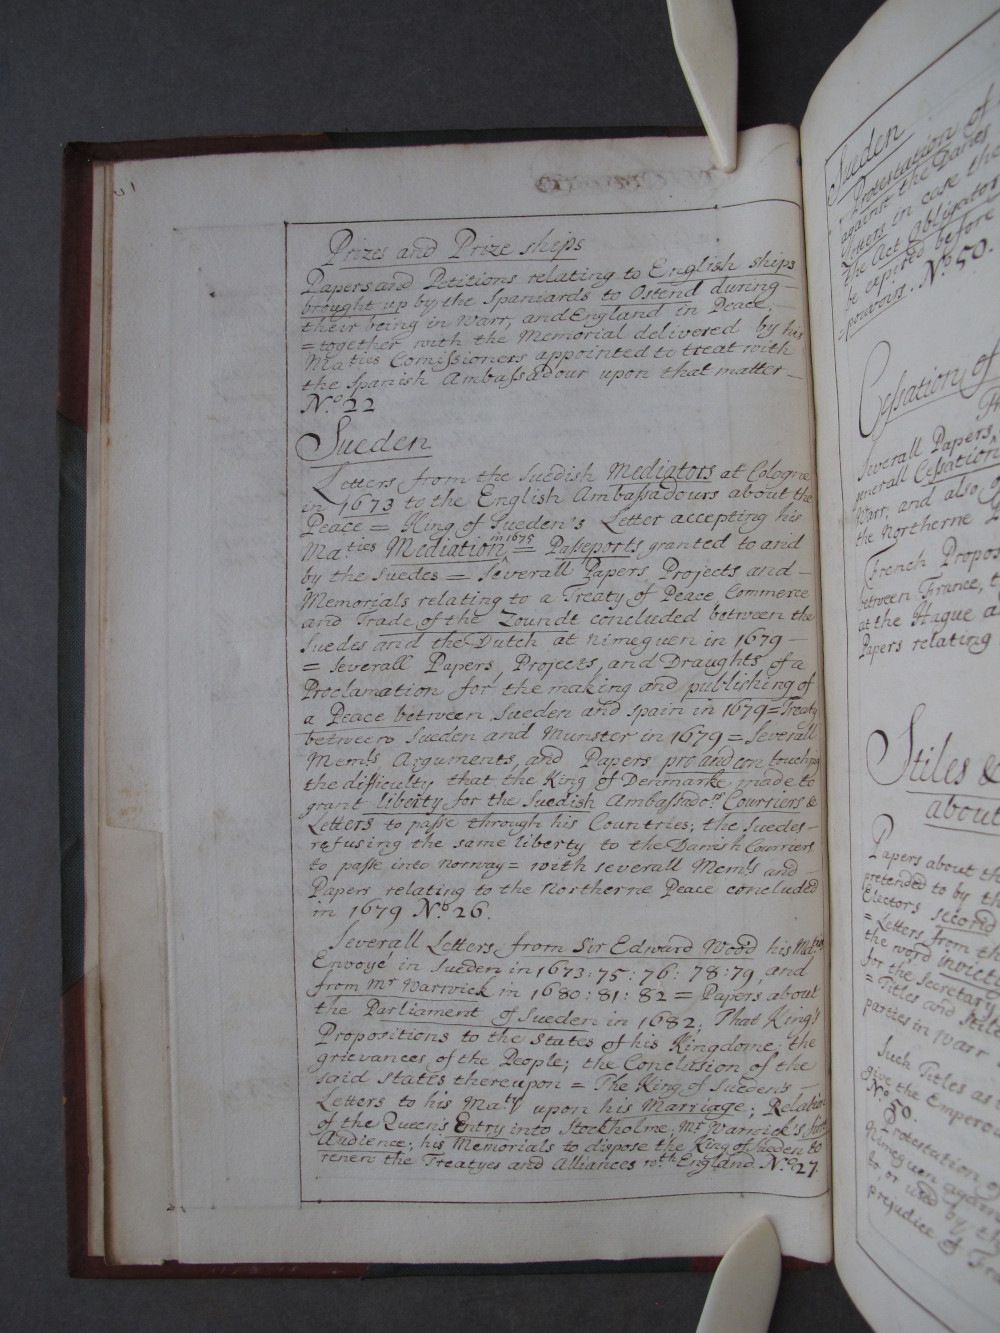 Prizes and Prize ships
Papers and Petitions relating to English ships
brought up by the Spaniards to Ostend during
their being in Warr, and England in Peace,
= together with the Memorial delivered by his
Maties Comissioners appointed to treat with
the Spanish Ambassadour upon that matter
No. 22
Sueden
Letters from the Suedish Mediators at Cologne
in 1673 to the English Ambassadours about the
Peace = King of Sueden's Letter accepting his
Maties Mediation in 1675 = Passeports granted to and
by the Suedes = Severall Papers Projects and
Memorials relating to a Treaty of Peace, Commerce
and Trade of the Zoundt concluded between the
Suedes and the Dutch at Nimeguen in 1679
= Severall Papers, Projects, and Draughts of a
Proclamation for the making and publishing of
a Peace between Sueden and Spain in 1679 = Treaty
between Sueden and Munster in 1679 = Severall
Memls, Arguments, and Papers pro and con touching
the difficulty that the King of Denmarke made to
grant liberty for the Suedish Ambassadors Courriers &
Letters to passe through his Countries; the Suedes
refusing the same liberty to the Danish Courriers
to passe into Norway = with severall Memls and
Papers relating to the Northerne Peace concluded
in 1679 No. 26.
Severall Letters from Sir Edward Wood his Maties
Envoyé in Sueden in 1673: 75: 76: 78: 79, and
from Mr Warwick in 1680: 81: 82 = Papers about
the Parliament of Sueden in 1682; That King's
Propositions to the States of his Kingdome; the
grievances of the People; the Conclusion of the
said States thereupon = The King of Sueden's
Letters to his Maty upon his Marriage; Relation
of the Queen's Entry into Stockholme, Mr Warwick's first
Audience; his Memorials to dispose the King of Sueden to
renew the Treatyes and Alliances wth England. No. 27.
Sueden
Protestation of
against the Danes
Letters in case the
the Act obligator
be expired before
pouvoirs. No. 50.
Cessation of
Severall Papers,
generall Cessation
Warr, and also
the Northerne
French Propos
between France,
at the Hague
Papers relating
Stiles &
about
Papers about the
pretended to by th
Electors second
= Letters from th
the word invict
for the Secretary
= Titles and Stil
parties in Warr
Such Titles as
give the Emperou
No. 50.
Protestation of
Nimeguen again
to, or used by th
prejudice of